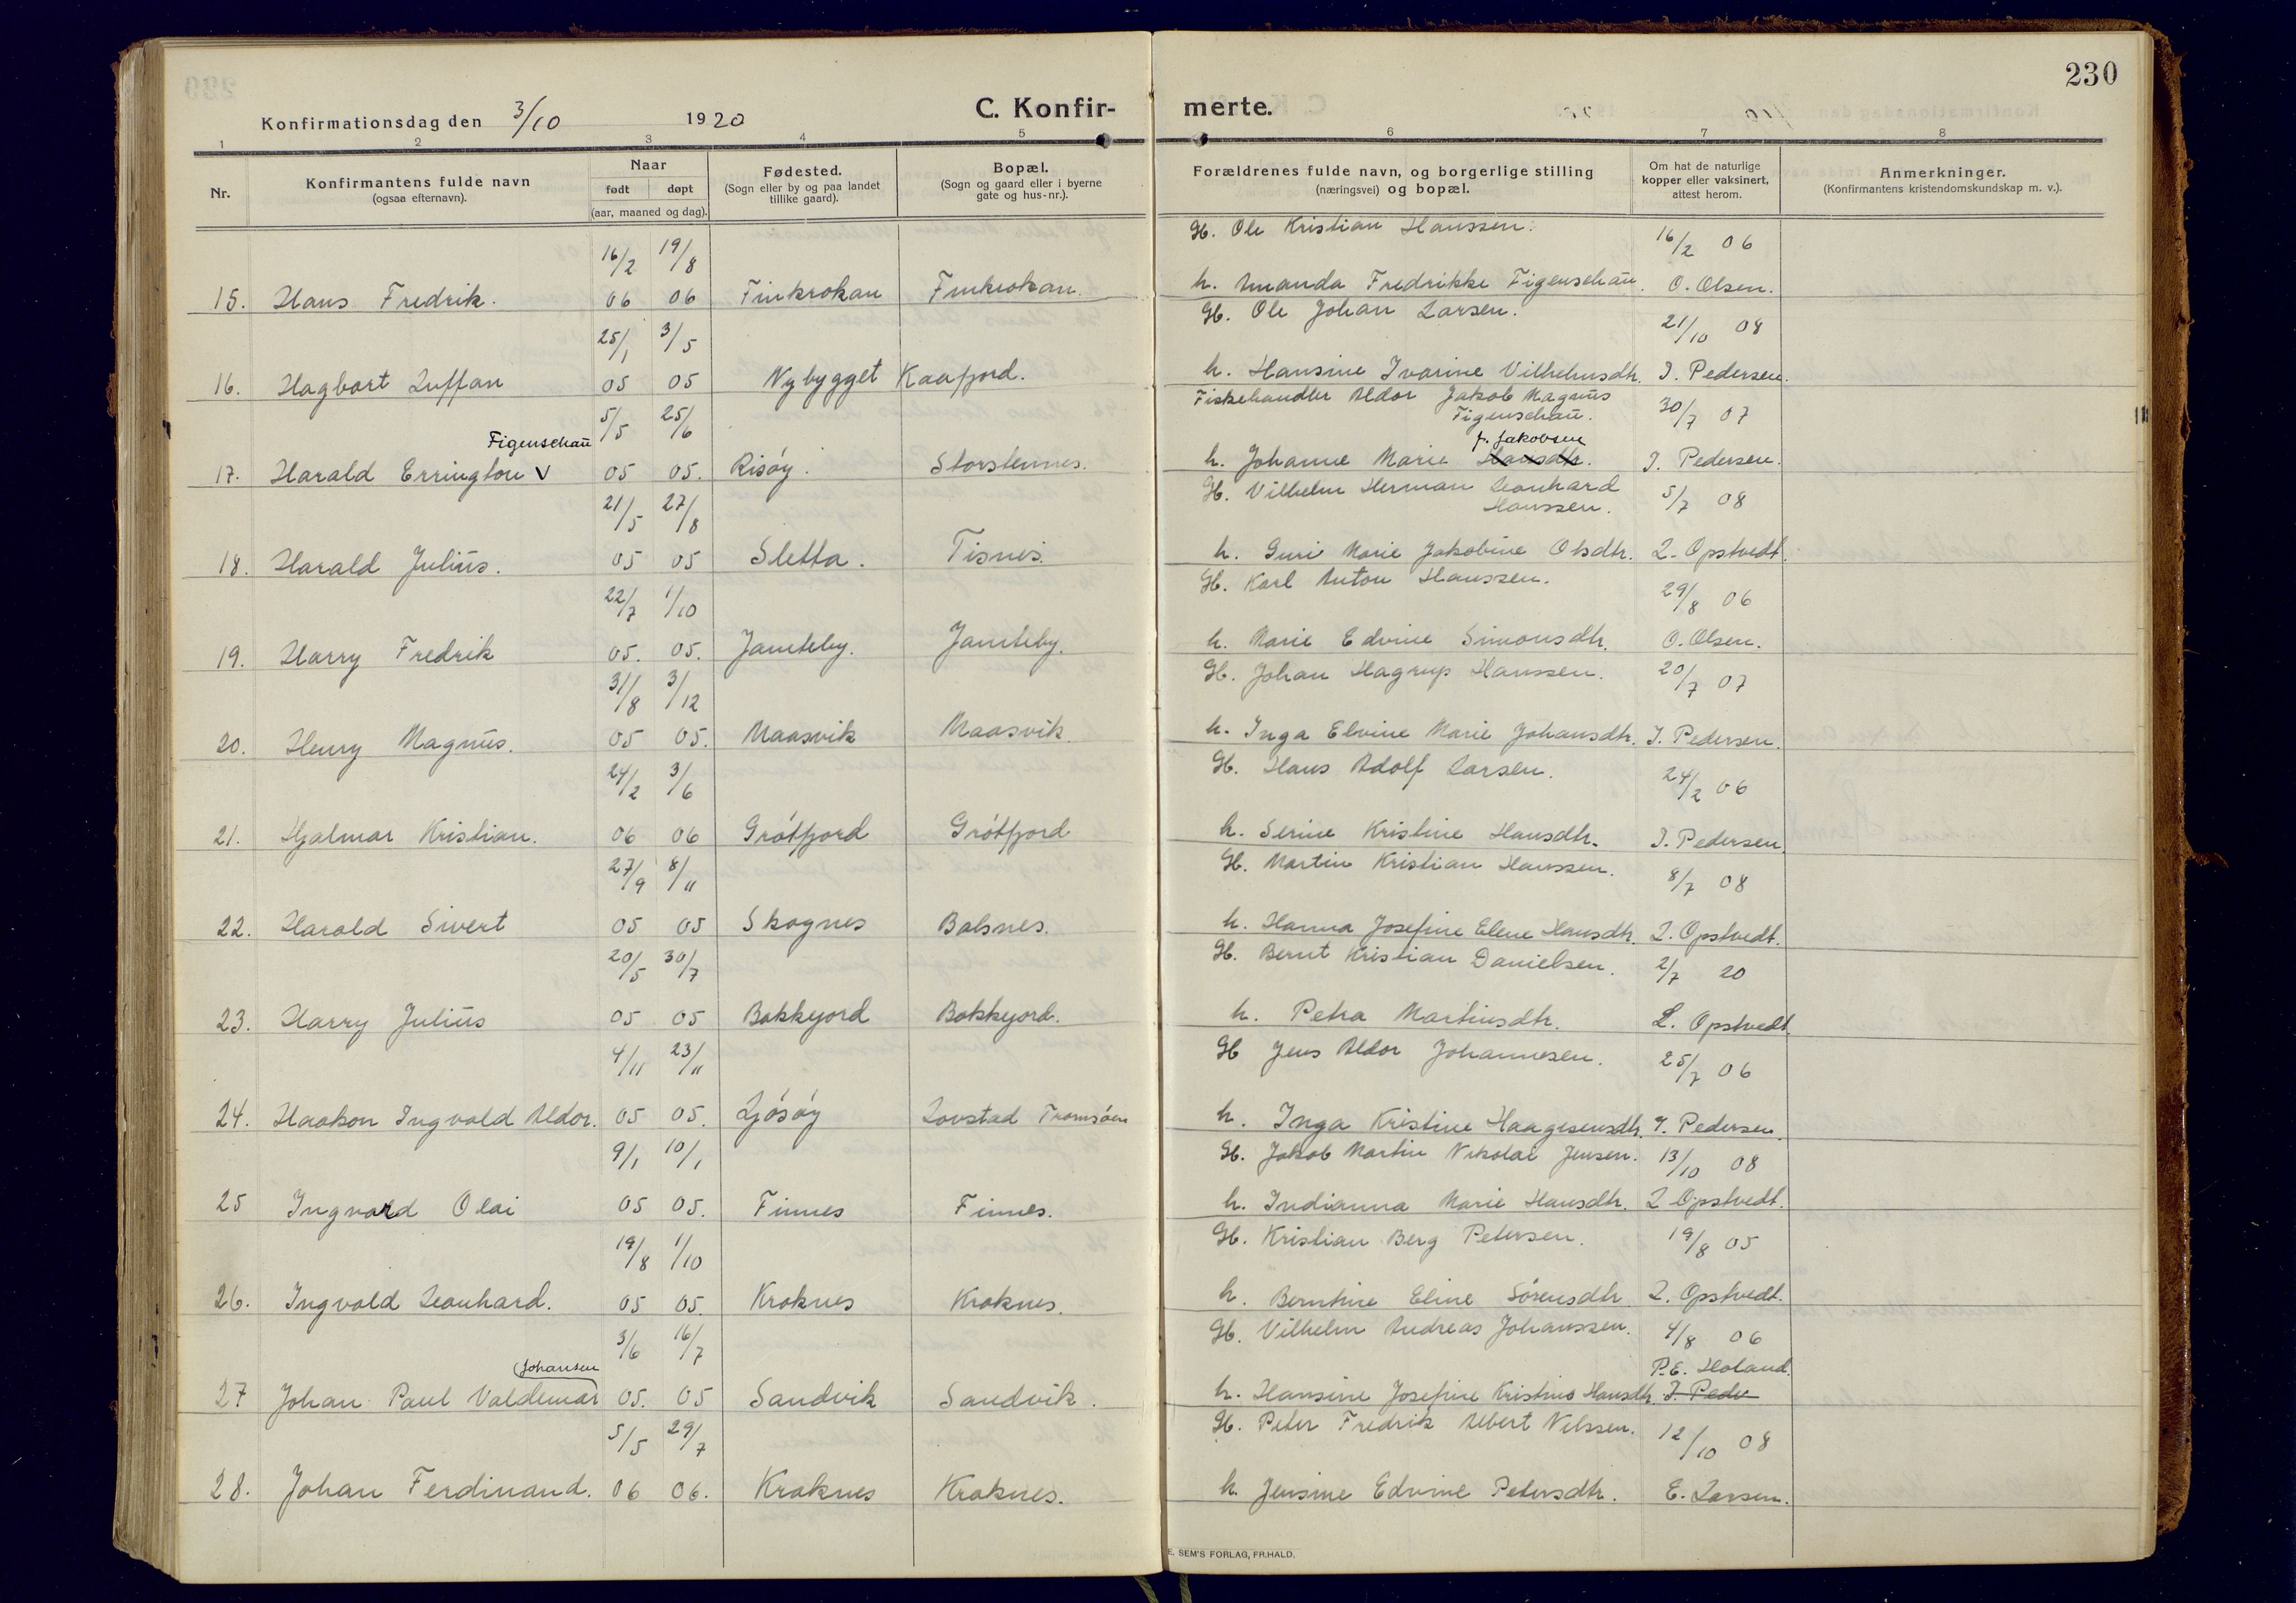 230
Konfirmationsdag den 3/10 1920
C. Konfir- merte.
1 2 3 4 5 6 7 8
Nr.
Konfirmantens fulde navn
(ogsaa efternavn).
Naar
født døpt
(aar, maaned og dag).
Fødested.
(Sogn eller by og paa landet
tillike gaard).
Bopæl.
(Sogn og gaard eller i byerne
gate og hus-nr.).
Forældrenes fulde navn, og borgerlige stilling
(næringsvei) og bopæl.
Om hat de naturlige
kopper eller vaksinert,
attest herom.
Anmerkninger.
(Konfirmantens kristendomskundskap m. v.).
16/2 19/8 Gb. Ole Kristian Hanssen. 16/2 06
15. Hans Fredrik. 06 06 Finkrokan Finkrokan. h. Amanda Fredrikke Figenschaŭ. O. Olsen.
25/1 3/5 Gb. Ole Johan Larsen. 21/10 08
16. Hagbart Luffan 05 05 Nybygget Kaafjord. h. Hansine Ivarine Vilhelmsdtr. I. Pedersen.
5/5 25/6 Fiskehandler Aldor Jakob Magnŭs 30/7 07
Figenschaŭ.
Figenschaŭ f. Jakobsen
17. Harald Errington V 05 05. Risöy. Storstennes. h. Johanne Marie Hansdtr. I. Pedersen.
21/5 27/8 Gb. Vilhelm Herman Leonhard 5/7 08
Hanssen.
18. Harald Juliŭs. 05 05 Sletta. Tisnes. h. Guri Marie Jakobine Olsdtr. L. Opstvedt.
22/7 1/10 Gb. Karl Anton Hanssen. 29/8 06
19. Harry Fredrik 05. 05. Jamteby. Jamteby. h. Marie Edvine Simonsdtr. O. Olsen.
31/8 3/12 Gb. Johan Hagrup Hanssen. 20/7 07
20. Henry Magnŭs. 05 05. Maasvik Maasvik. h. Inga Elvine Marie Johansdtr. I. Pedersen.
24/2 3/6 Gb. Hans Adolf Larsen. 24/2 06
21. Hjalmar Kristian. 06 06 Grötfjord Grötfjord h. Serine Kristine Hansdtr. I. Pedersen.
27/9 8/11 Gb. Martin Kristian Hanssen. 8/7 08
22. Harald Sivert 05 05 Skognes Balsnes. h. Hanna Josefine Elene Hansdtr. L. Opstvedt.
20/5 30/7 Gb. Bernt Kristian Danielsen. 2/7 20
23. Harry Juliŭs 05 05 Bakkejord Bakkejord. h. Petra Martinsdtr. L. Opstvedt.
4/11 23/11 Gb Jens Aldor Johannesen. 25/7 06
24. Haakon Ingvald Aldor. 05 05. Ljösöy Lovstad Tromsöen h. Inga Kristine Haagensensdtr. I. Pedersen.
9/1 10/1 Gb. Jakob Martin Nikolai Jensen. 13/10 08
25 Ingvard Olai 05 05. Finnes Finnes. h. Indianna Marie Hansdtr. L Opstvedt.
19/8 1/10 Gb. Kristian Berg Petersen. 19/8 05
26. Ingvald Leonhard. 05 05. Kroknes Kroknes. h. Berntine Eline Sörensdtr. L. Opstvedt.
3/6 16/7 Gb. Vilhelm Andreas Johanssen. 4/8 06
Johansen P.E. Holand.
27 Johan Paul Valdemar 05. 05 Sandvik Sandvik. h. Hansine Josefine Kristine Hansdtr. I. Peder
5/5 29/7 Gb. Peter Fredrik Albert Nilssen. 12/10 08
28. Johan Ferdinand. 06 06. Kroknes Kroknes. h. Jensine Edvine Petersdtr. E. Larsen.
E. SEM'S FORLAG, FR.HALD.